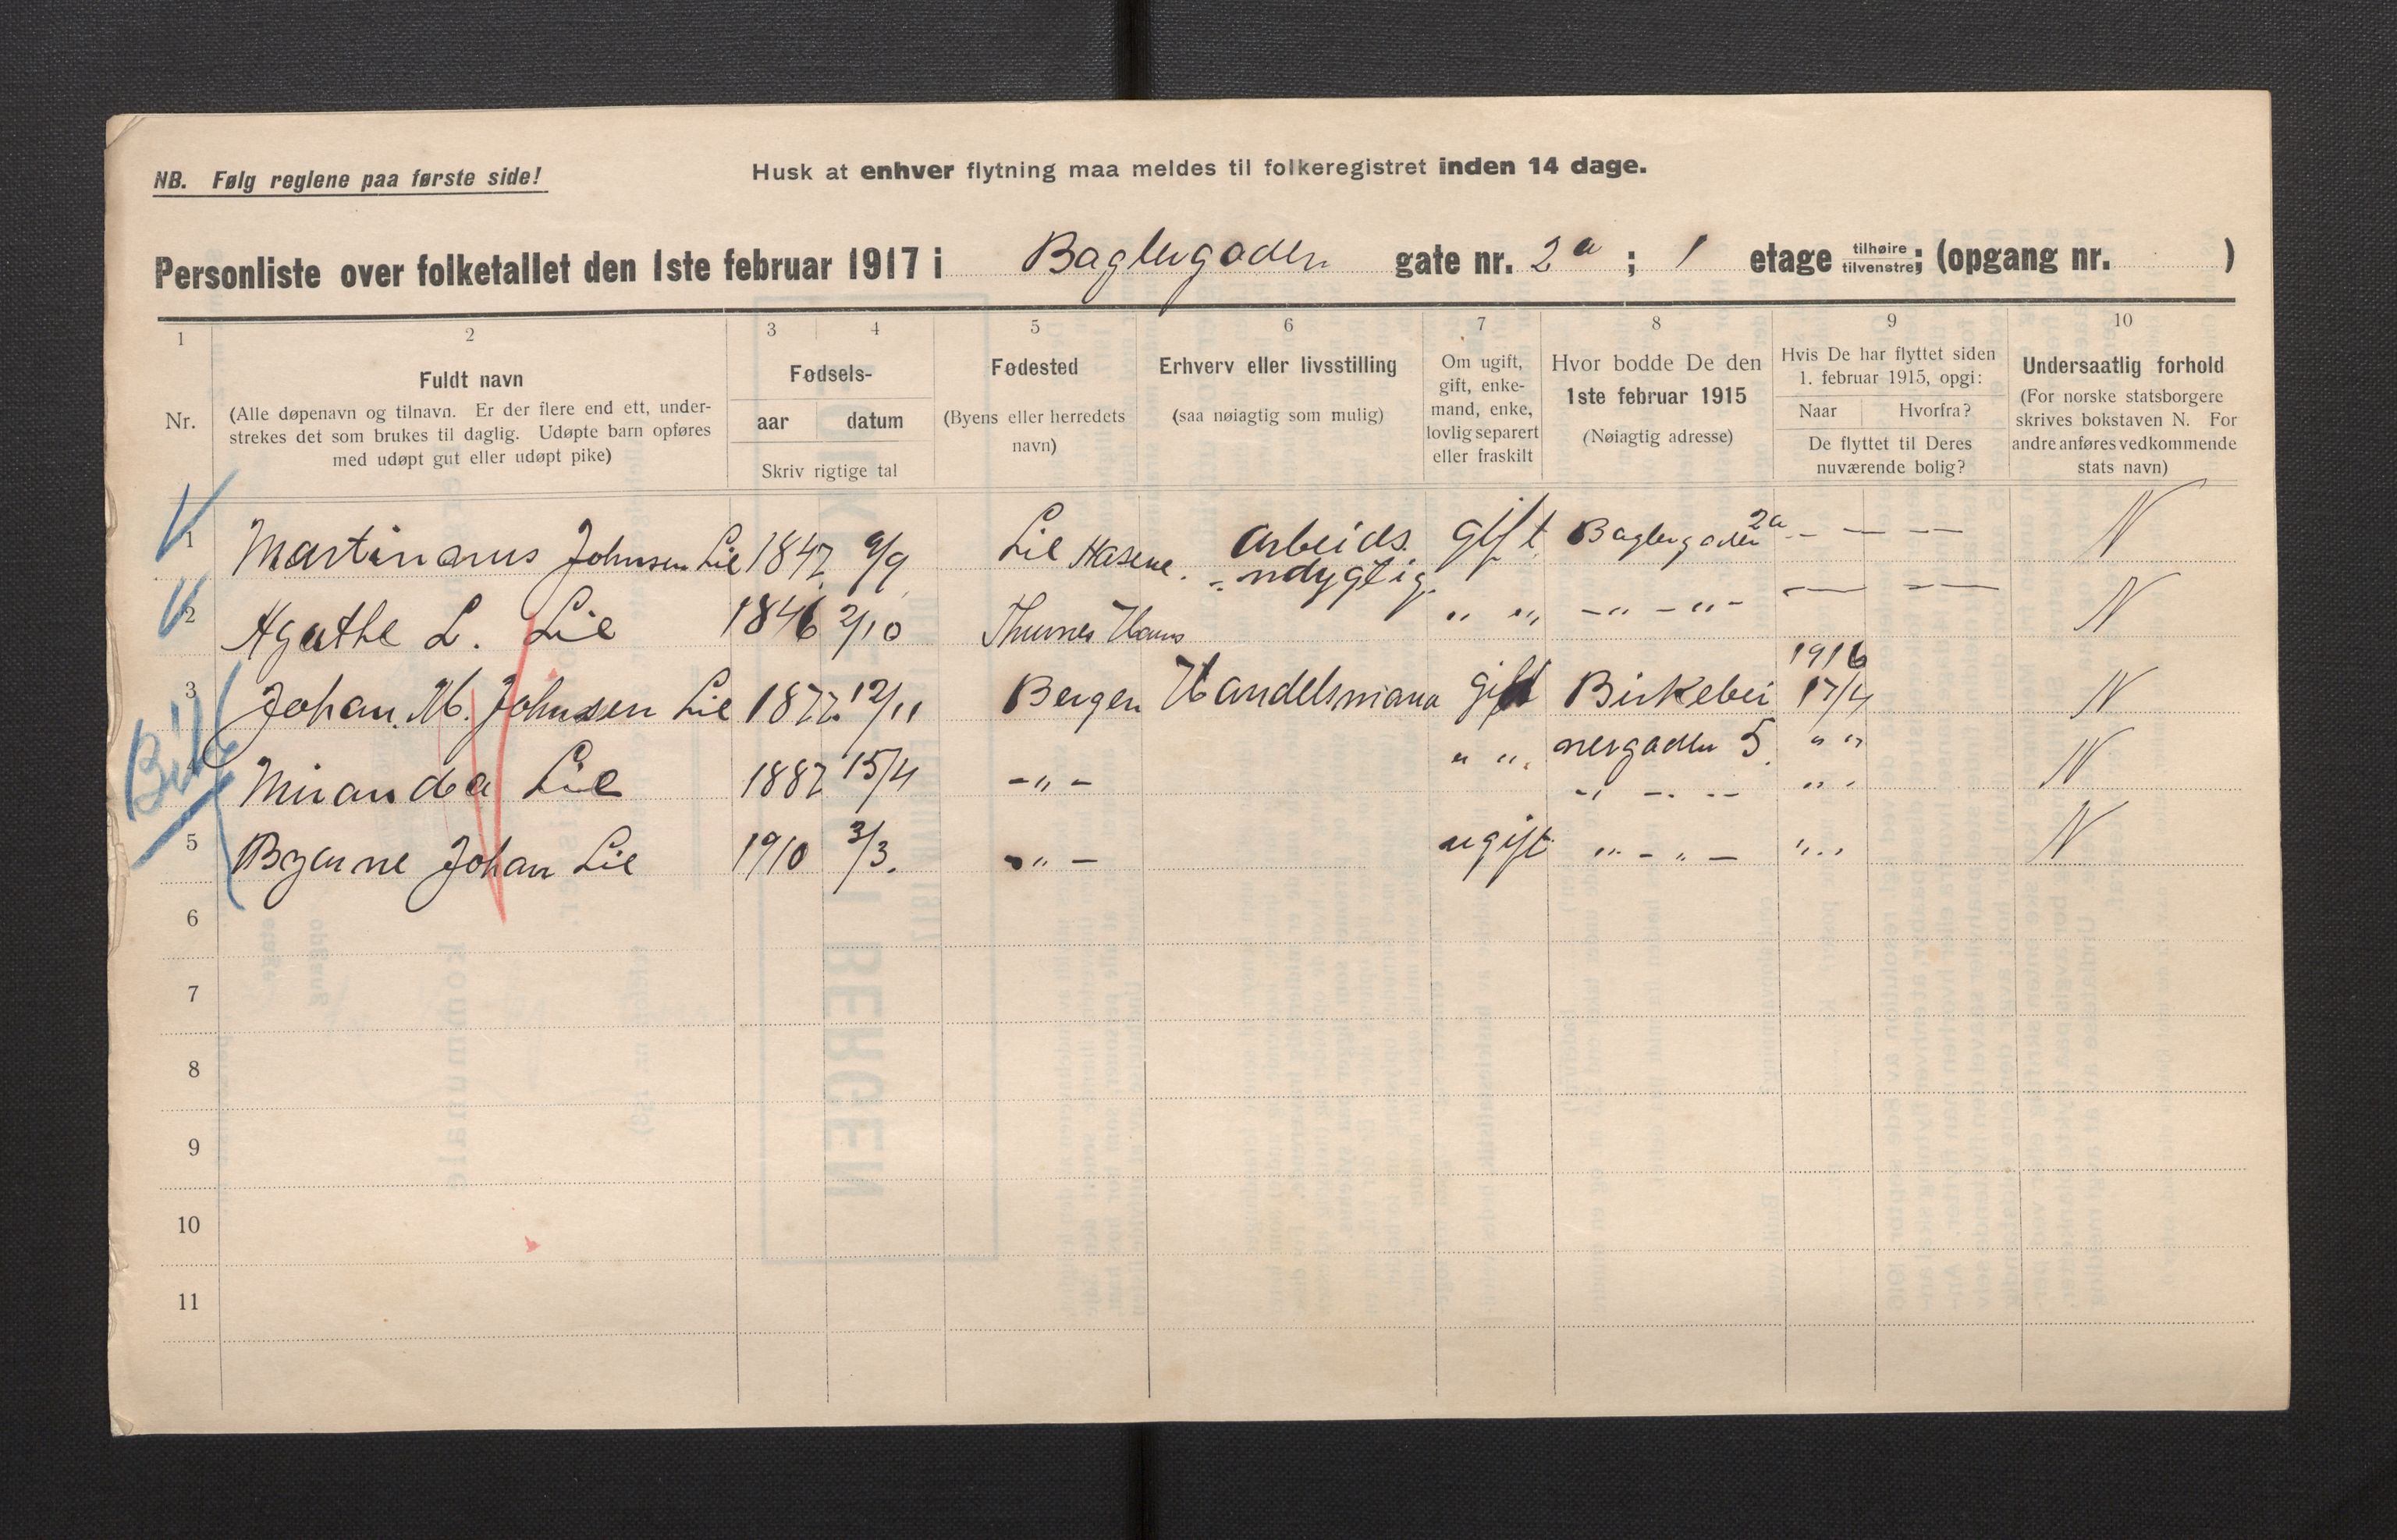 NB. Følg reglene paa første side!
Husk at enhver flytning maa meldes til folkeregistret inden 14 dage.
Personliste over folketallet den 1ste februar 1917 i Baglergaden gate nr. 2a ; 1 etage tilhøire tilvenstre; (opgang nr. )
1 2 3 4 5 6 7 8 9 10
Nr.
Fuldt navn
(Alle døpenavn og tilnavn. Er der flere end ett, under-
strekes det som brukes til daglig. Udøpte barn opføres
med udøpt gut eller udøpt pike)
Fødsels-
aar datum
Skriv rigtige tal
Fødested
(Byens eller herredets
navn)
Erhverv eller livsstilling
(saa nøiagtig som mulig)
Om ugift,
gift, enke-
mand, enke,
lovlig separert
eller fraskilt
Hvor bodde De den
1ste februar 1915
(Nøiagtig adresse)
Hvis De har flyttet siden
1. februar 1915, opgi:
Naar Hvorfra?
De flyttet til Deres
nuværende bolig?
Undersaatlig forhold
(For norske statsborgere
skrives bokstaven N. For
andre anføres vedkommende
stats navn)
1 Martinanus Johnsen Lie 1847 9/9 Lie Hasene. Arbeids. gift Baglergaden 2a — — — N
- udygtig.
2 Agathe L. Lie 1846 2/10 " " - " - " - — — — N
3 Johan. M. Johnsen Lie 1877. 12/11 Bergen Handelsmann gift Birkebei 1916 17/4 N
nergaden 5. " "
Miranda Lie 1887 15/4 - " - " " " - - " " N
5 Bjarne Johan Lie 1910 3/3. - " - ugift " - " - " " N
6
7
8
9
10
11